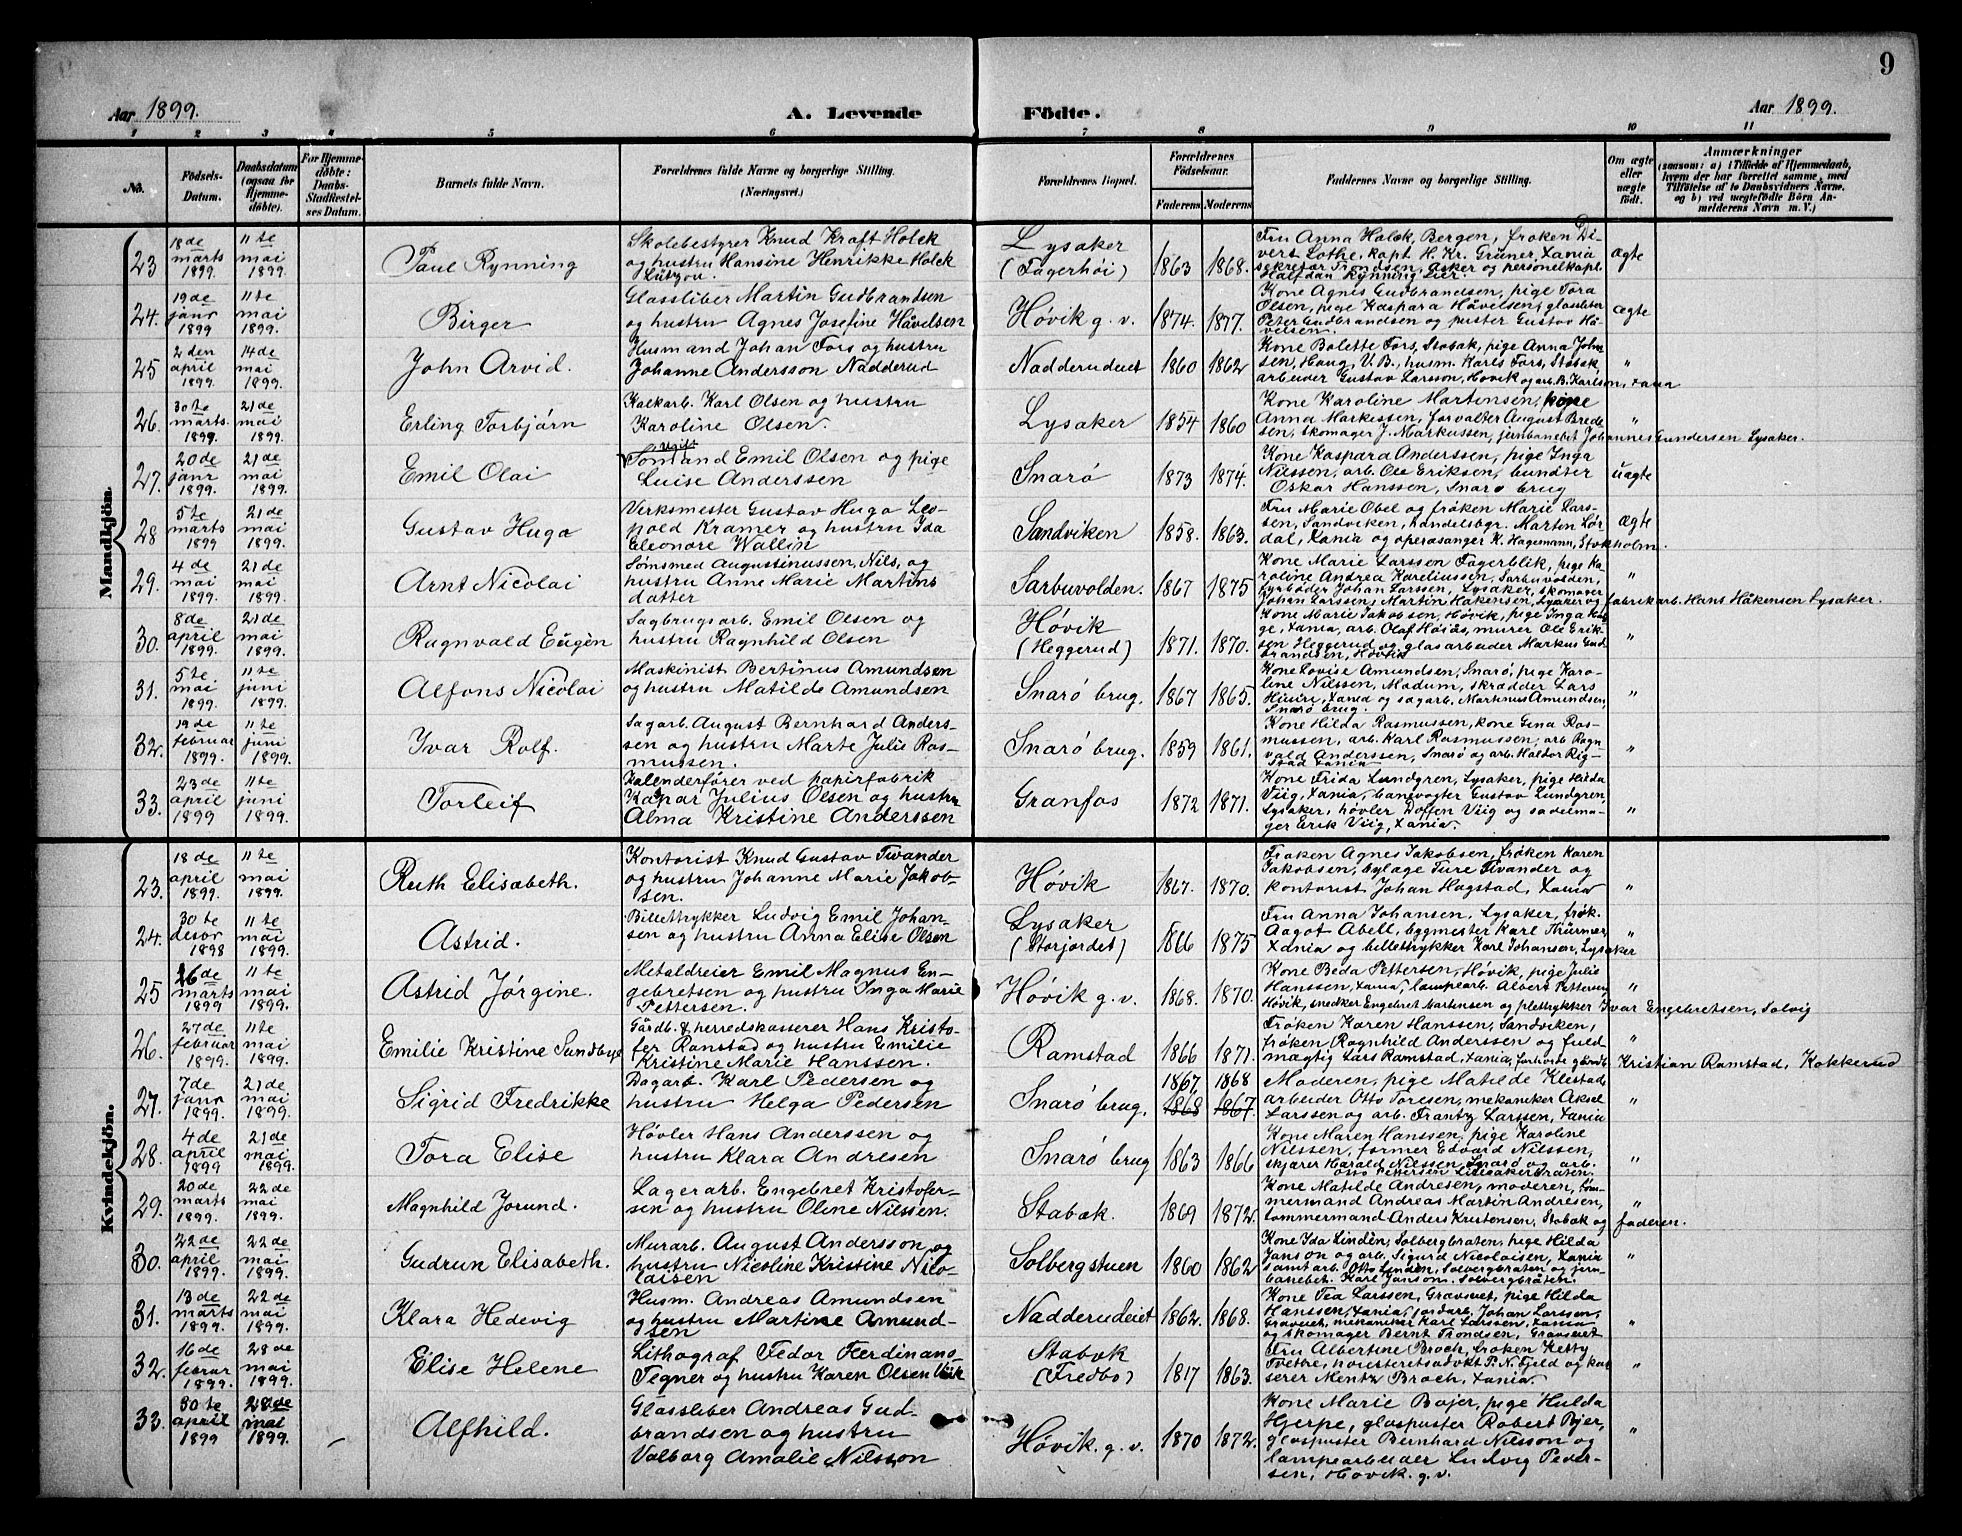 9
Aar 1899.
A. Levende
Födte.
Aar 1899.
1 2 3 4 5 6 7 8 9 10 11
No. Födsels-Datum. Daabsdatum (ogsaa for Hjemmedöbte). For Hjemmedöbte: Daabs-Stadfæstelses Datum. Barnets fulde Navn. Forældrenes fulde Navne og borgerlige Stilling. (Næringsvei.) Forældrenes Bopæl. Forældrenes Födselsaar. Faderens Moderens Faddernes Navne og borgerlige Stilling. Om ægte eller uægte födt. Anmærkninger (saasom: a) i Tilfælde af Hjemmedaab, hvem der har forrettet samme, med Tilföielse af to Daabsvidners Navne, og b) ved uægtefödte Börn Anmelderens Navn m. V.)
Mandkjön.
23 18de marts 1899. 11te mai 1899. Paul Rynning
Skolebestyrer Knud Kraft Holck
og hustru Hansine Henrikke Holck
Lützou.
Lysaker (Fagerhøi) 1863 1868.
Fru Anna Holck, Bergen, frøken Di-
vert Lothe, kapt. H. Kr. Grüner, Xania
sekretær Trondsen, Asker og personelkapl.
Halfdan Rynning Lier.
ægte
24. 19de janr 1899 11te mai 1899. Birger
Glassliber Martin Gudbrandsen
og hustru Agnes Josefine Håvelsen
Høvik g. v. 1874. 1877.
Kone Agnes Gudbrandsen, pige Tora
Olsen, pige Kaspara Håvelsen, glassliber
Peter Gudbrandsen og puster Gustav Hå-
velsen.
ægte
25 2den april 1899. 14de mai 1899. John Arvid.
Husmand Johan Fors og hustru
Johanne Andersson Nadderud
Nadderudeiet 1860 1862
Kone Bolette Fors, Stabæk, pige Anna John-
sen, Haug, V. B., husm. Karls Fors, Stabæk,
arbeider Gustav Larsson, Høvik og arb. B. Karlson, Xania
"
26. 30te marts. 1899. 21de mai 1899. Erling Torbjørn
Kalkarb. Karl Olsen og hustru
Karoline Olsen.
Lysaker 1854 1860
Kone Karoline Martinsen, pige
Anna Markussen, forvalter August Brede-
sen, skomager J. Markussen, jernbanebet Johannes Gundersen Lysaker.
"
27. 20de janr 1899. 21de mai 1899. Emil Olai
Ugift
Tømmand Emil Olsen og pige
Luise Anderssen
Snarø 1873 1874.
Kone Kaspara Anderssen, pige Inga
Nilssen, arb. Ole Eriksen, bundter
Oskar Hanssen, Snarø brug
uægte
28 5te marts 1899 21de mai 1899. Gustav Hugo
Verksmester Gustav Hugo Leo-
pold Kramer og hustru Ida
Eleonore Wallin
Sandviken 1858. 1863.
Fru Marie Obel og frøken Marie Lars-
sen, Sandviken, handelsbgr. Martin Lør-
dal, Xania og operasanger K. Hagemann, Stokholm.
ægte
29. 4de mai 1899. 21de mai 1899. Arnt Nicolai
Tømsmed Augustinussen, Nils, og
hustru Anne Marie Martins
datter
Sarbuvolden. 1867 1875
Kone Marie Larssen Fagerblik, pige Ka-
roline Andrea Kareliussen, Sarbuvolden,
fyrbøder Johan Larssen, Lysaker, skomager
Johan Larssen, Martin Håkensen, Lysaker og fabrikarb. Hans Håkensen Lysaker.
"
30. 8de april 1899. 21de mai 1899. Ragnvald Eugèn
Sagbrugsarb. Emil Olsen og
hustru Ragnhild Olsen
Høvik (Heggerud) 1871. 1870.
Kone Marie Jakobsen, Høvik, pige Inga
Xania, arb. Olaf Høiås, murer Ole Erik-
sen Heggerud og glasarbeider Markus Gud-
brandsen, Høvik
"
31. 5te mai 1899. 11te juni 1899. Alfons Nicolai
Maskinist Bertinus Amundsen
og hustru Matilde Amundsen
Snarø brug. 1867 1865.
Kone Lovise Amundsen, Snarø, pige Karo-
line Nilssen, Modum, skrædder Lars
Xania og sagarb. Martinus Amundsen,
Snarø brug.
"
32. 19de februar 1899. 11te juni 1899. Ivar Rolf.
Sagarb. August Bernhard Anders-
sen og hustru Marte Julie Ras-
mussen.
Snarø brug. 1859 1861.
Kone Hilda Rasmussen, kone Gina Ras-
mussen, arb. Karl Rasmussen, arb Ragn-
vald Anderssen, Snarø og arb. Haldor Rig-
stad Xania
"
33. 23de april 1899 11te juni 1899. Torleif
Kalenderfører ved papirfabrik
Kaspar Julius Olsen og hustru
Alma Kristine Anderssen
Granfos 1872 1871.
Kone Frida Lundgren, Lysaker, pige Hilda
Viig, Xania, banevogter Gustav Lundgren,
Lysaker, høvler Doffen Viig og sadelma-
ger Erik Viig, Xania.
"
Kvindekjön.
23. 18de april 1899. 11te mai 1899. Ruth Elisabeth.
Kontorist Knud Gustav Tivander
og hustru Johanne Marie Jakob-
sen.
Høvik 1867. 1870.
Frøken Agnes Jakobsen, frøken Karen
Jakobsen, bylæge Ture Tivander og
kontorist Johan Hagstad, Xania
"
24. 30te decbr 1898 11te mai 1899. Astrid.
Billettrykker Ludvig Emil Johan-
sen og hustru Anna Elise Olsen
Lysaker (Storjordet) 1866 1875
Fru Anna Johansen, Lysaker, frøk.
Aagot Abell, bygmester Karl Thürmer,
Xania og billettrykker Karl Johansen, Lysaker
"
25 26de marts 1899 11te mai 1899. Astrid Jørgine.
Metaldreier Emil Magnus En-
gebretsen og hustru Inga Marie
Pettersen.
Høvik g. v. 1868. 1870.
Kone Beda Pettersen, Høvik, pige Julie
Hanssen, Xania, lampearb. Albert Pettersen,
Høvik, snedker Engebret Martinsen og pletrykker Ivar Engebretsen, Solvig
"
26. 27de februar 1899. 11te mai 1899. Emilie Kristine Sundbye
Gårdb. & herredskasserer Hans Kristo-
fer Ramstad og hustru Emilie
Kristine Marie Hanssen.
Ramstad 1866 1871.
Frøken Karen Hanssen, Sandviken,
frøken Ragnhild Anderssen og fuld
mægtig Lars Ramstad, Xania, forhvrde gårdb. Kristian Ramstad, Kokkerud
"
27. 7de janr 1899. 21de mai 1899. Sigrid Fredrikke
Dagarb. Karl Pedersen og
hustru Helga Pedersen
Snarø brug. 1867 1868 1868 1867
Moderen, pige Matilde Klestad,
arbeider Otto Toresen, mekaniker Aksel
Larssen og arb. Frantz Larssen, Xania
"
28. 4de april 1899 21de mai 1899. Tora Elise
Høvler Hans Anderssen og
hustru Klara Andresen
Snarø brug 1863 1866
Kone Maren Hanssen, pige Karoline
Nilssen, former Edvard Nilssen,
skjærer Harald Nilssen, Snarø og arb.
Otto Pettersen Lilleakerbraten.
"
29. 20de marts 1899. 22de mai 1899. Magnhild Jorund.
Lagerarb. Engebret Kristofer-
sen og hustru Oline Nilssen.
Stabæk. 1869 1872.
Kone Matilde Andresen, moderen, tøm-
mermand Andreas Martin Andresen,
tømmermand Anders Kristensen, Stabæk og faderen.
"
30. 22de april 1899. 22de mai 1899. Gudrun Elisabeth.
Murarb. August Andersson og
hustru Nicoline Kristine Nico-
laisen
Solbergstuen 1860 1862
Kone Ida Lindèn, Solbergbråten, pige Hilda
Janson og arb. Sigurd Nicolaisen, Xania
samt arb. Otto Lindèn, Solvergbråten og jern-
banebet. Karl Janson. Solvergbråten.
"
31. 13de marts 1899. 22de mai 1899. Klara Hedevig
Husm. Andreas Amundsen
og hustru Martine Amund-
sen
Nadderudeiet 1862. 1868.
Kone Tea Larssen, Gravseiet, pige Hilda
Hanssen, Xania, jordarb. Johan Larssen,
Graveiet, mekaniker Karl Larssen, Xania
og skomager Bernt Trondsen, Gravseiet
"
32. 16de februar 1899. 28de mai 1899. Elise Helene
Lithograf Fedor Ferdinand
Tegner og hustru Karen Olsen Viik
Stabæk (Fredbo) 1817 1863.
Fru Albertine Broch, frøken Ketty
Tvethe, høiesteretsadvkt P. N. Fjeld og kas
serer Mentz Broch, Xania.
"
33. 30te april 1899 28de mai 1899. Alfhild.
Glassliber Andreas Gud-
brandsen og hustru
Valborg Amalie Nilsson
Høvik. g. v. 1870 1872.
Kone Marie Bajer, pige Hulda
Hjerpe, glaspuster Robert Bjer,
glaspuster Bernhard Nilsson og
lampearbeider Ludvig Peder-
sen, Høvik. g. v.
"